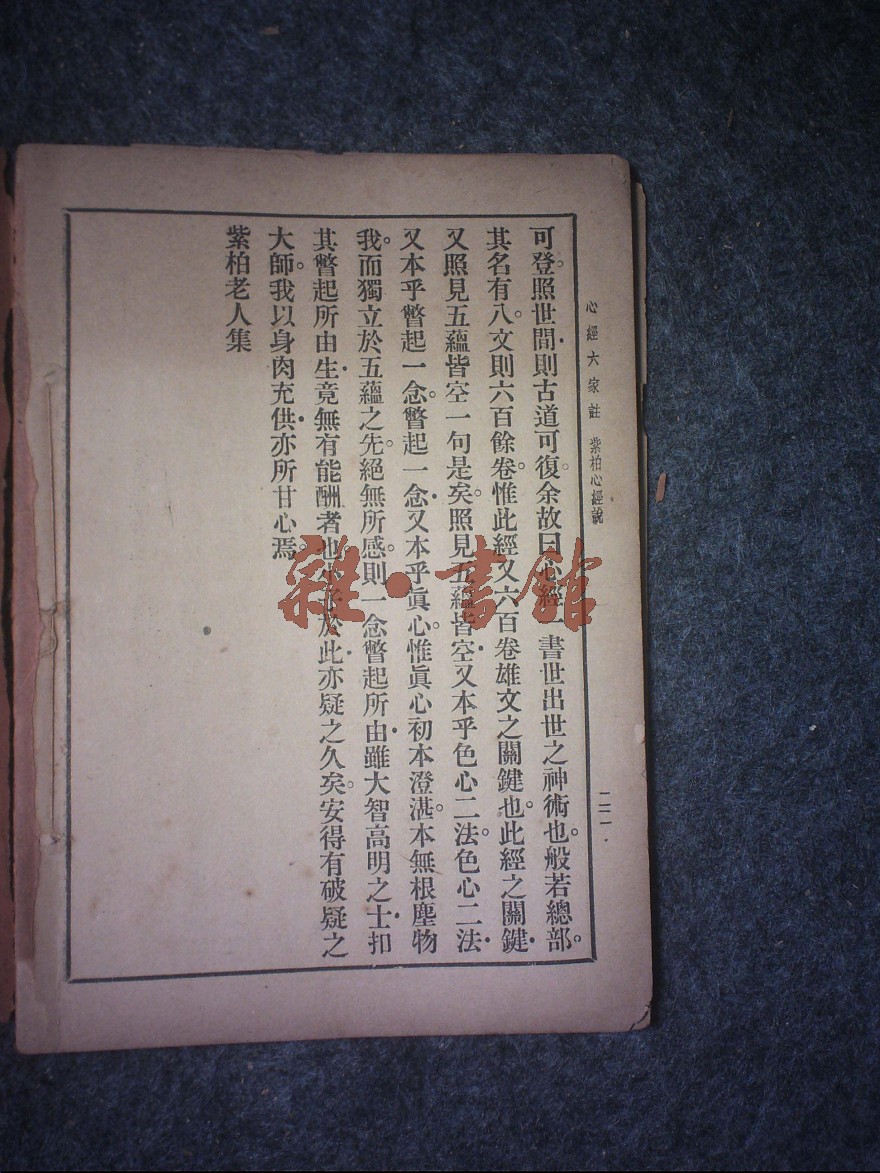 心經六家註 紫柏心經說 二二一
可登照世間則古道可復余故曰心經一書世出世之神術也般若總部
其名有八文則六百餘卷惟此經又六百卷雄文之關鍵也此經之關鍵
又照見五蘊皆空一句是矣照見五蘊皆空又本乎色心二法色心二法
又本乎瞥起一念瞥起一念又本乎眞心惟眞心初本澄湛本無根塵物
我而獨立於五蘊之先絕無所感則一念瞥起所由雖大智高明之士扣
其瞥起所由生竟無有能酬者也於此亦疑之久矣安得有破疑之
大師我以身肉充供亦所甘心焉
紫柏老人集
雜·書館